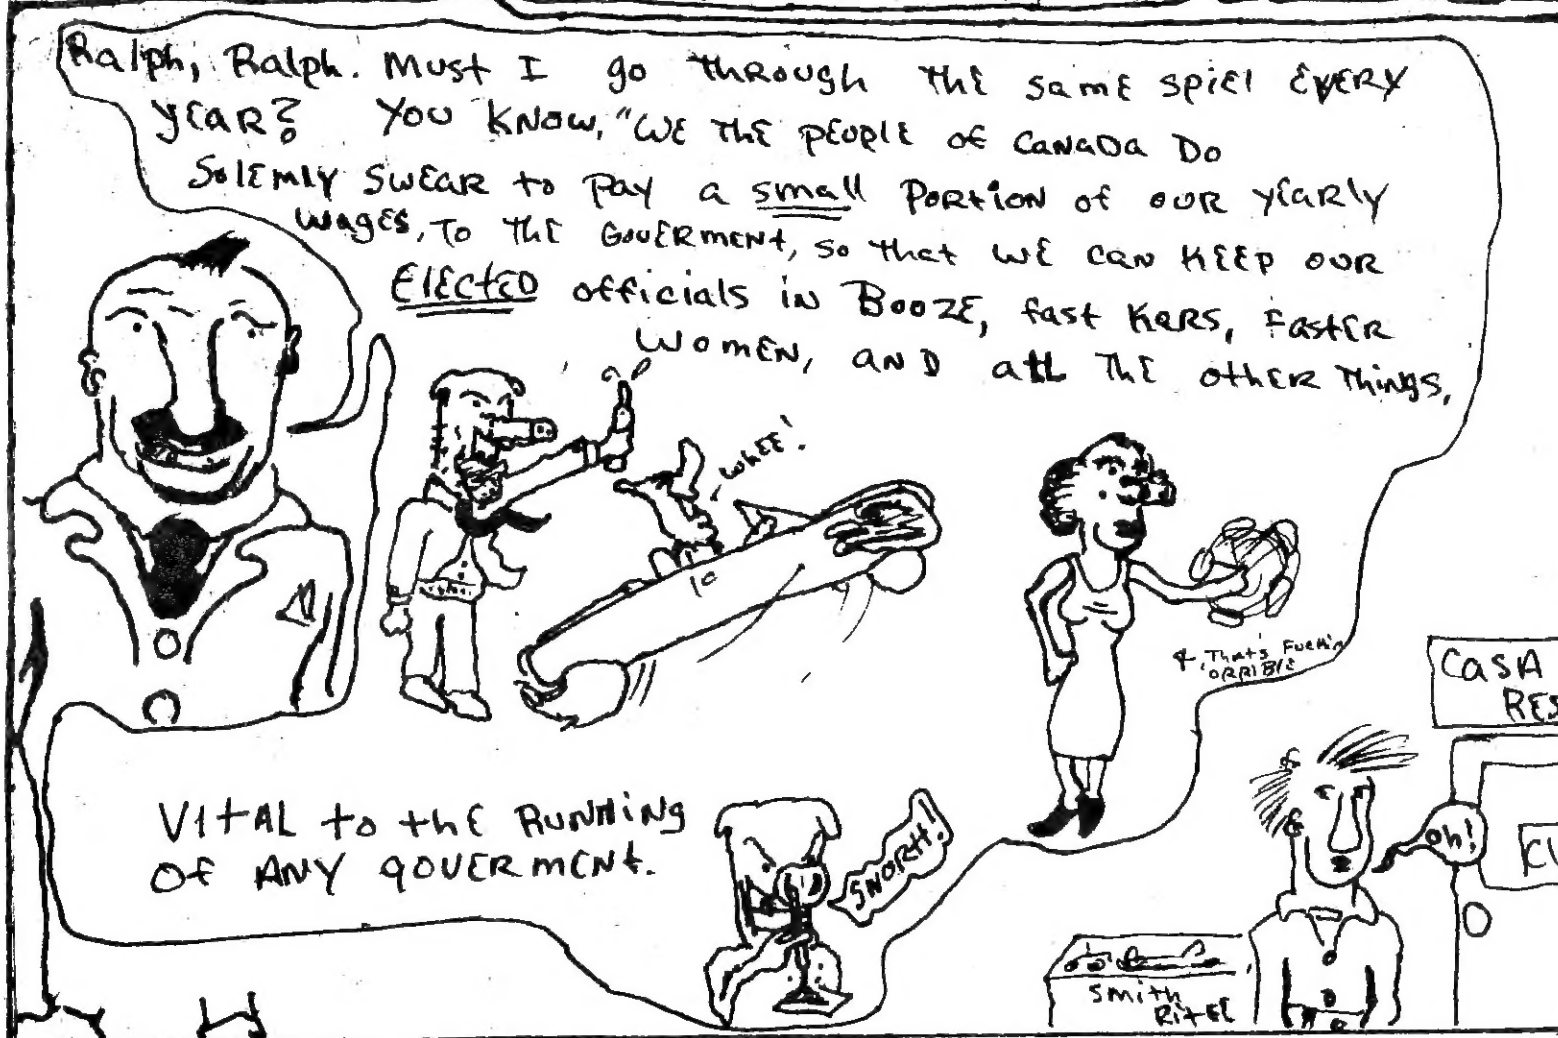 Ralph, Ralph. Must I go through the same spiel every
year? You know, "We the people of Canada do
solemly swear to pay a small portion of our yearly
wages, to the goverment, so that we can keep our
elected officials in booze, fast kars, faster
women, and all the other things,
whee!
10
& That's Fuckin
orrible
Vital to the running
of any goverment.
SNORH!
Casa
Res
oh!
Smith
Ritel